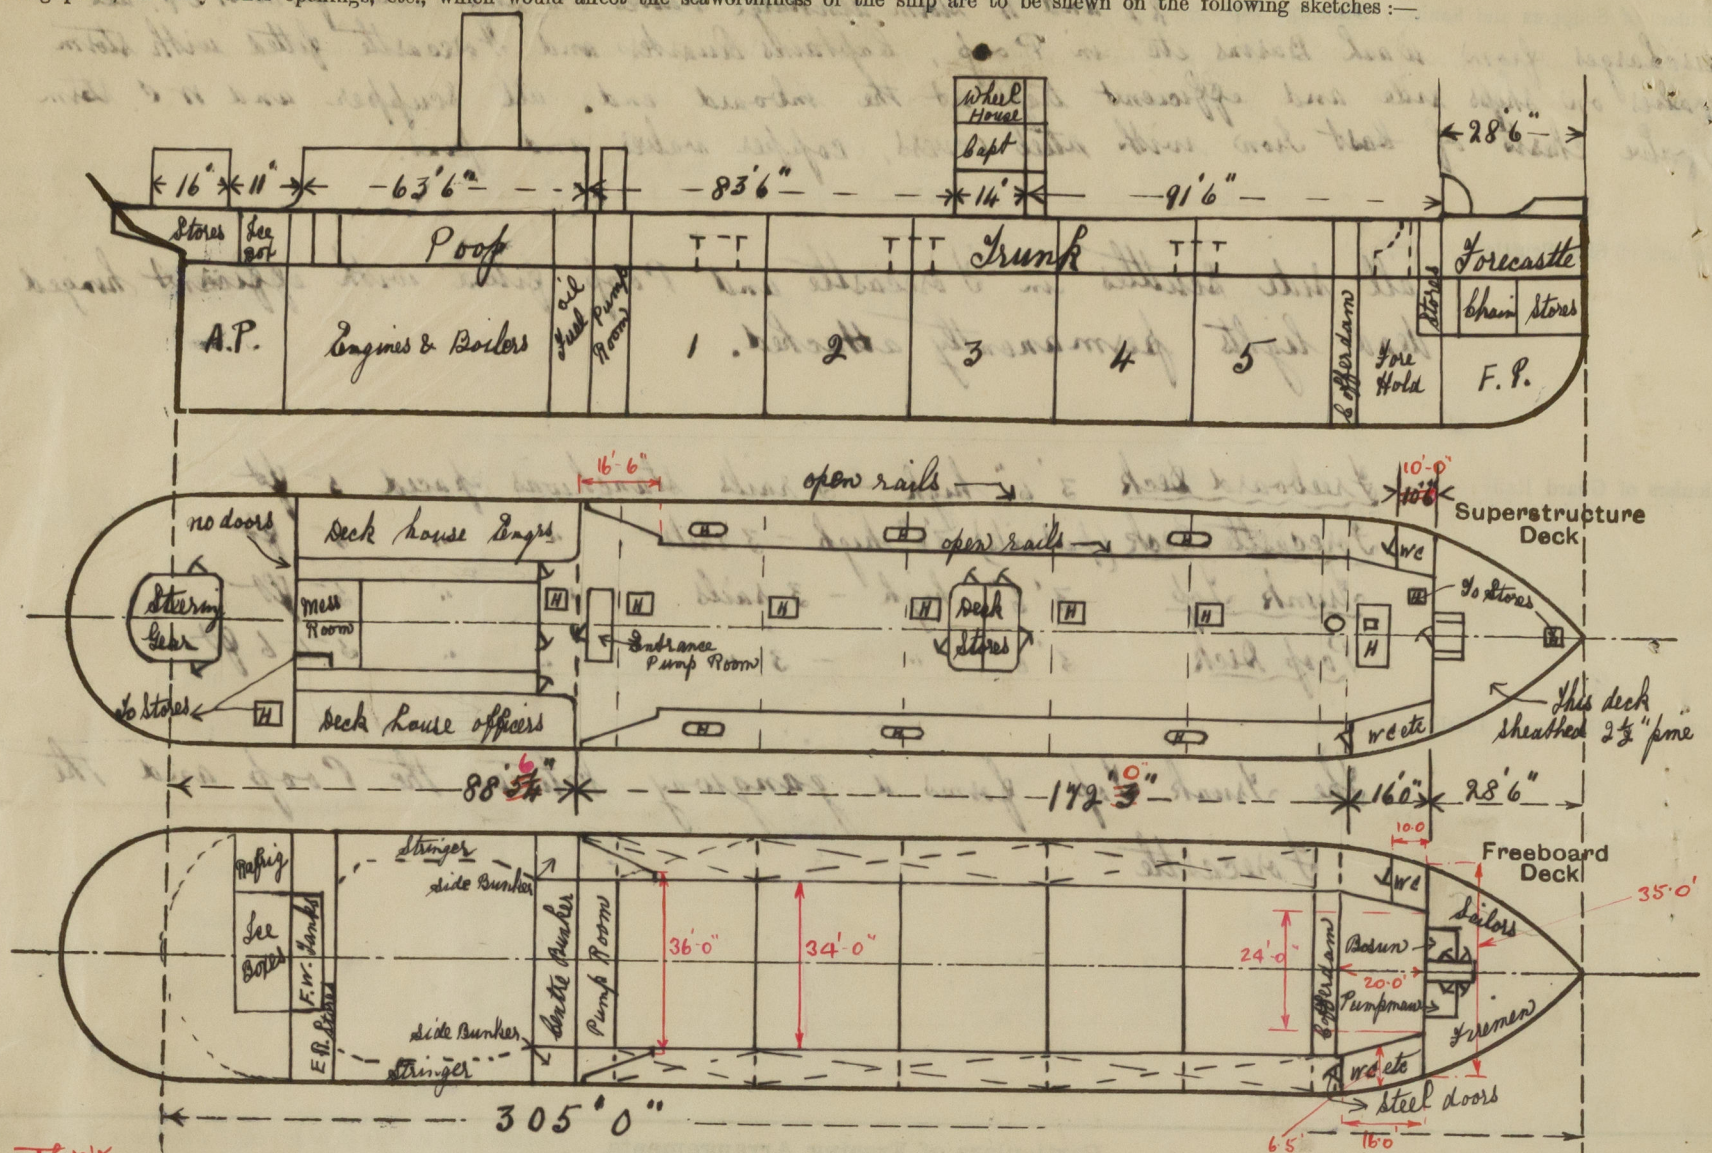 openings, etc., which would affect the seaworthiness of the ship are to be shewn on the following sketches :—
Wheel House
Capt
28'6"
16' 11' 63'6" 83'6" 14' 91'6"
Stores Ice Box Poop Trunk Forecastle
Stores Chain Stores
A.P. Engines & Boilers Oil Fuel Pump Room 1 2 3 4 5 Cofferdam Fore Hold F.P.
16'-6"
open rails
10'-0"
10'6"
Superstructure Deck
no doors
Deck house Engrs
open rails
WC
Steering Gear
Mess Room
H H H H H H H H H H H
Deck Stores
To Stores
Entrance Pump Room
To Stores
H
Deck house officers
H H H
WC etc
This deck sheathed 2½" pine
88' 5¼" 6
172' 3" 0
16'0" 28'6"
10.0
Freeboard Deck
Refrig
Stringer
Side Bunker
WC
35.0'
Ice Boxes
F.W. Tanks
E.R. Stores
Centre Bunker
Pump Room
36'-0"
34'-0"
24'-0"
Cofferdam
Bosun
20.0'
Pumpman
Sailors
Firemen
Side Bunker
Stringer
WC etc
steel doors
305'0"
6.5'
16.0'